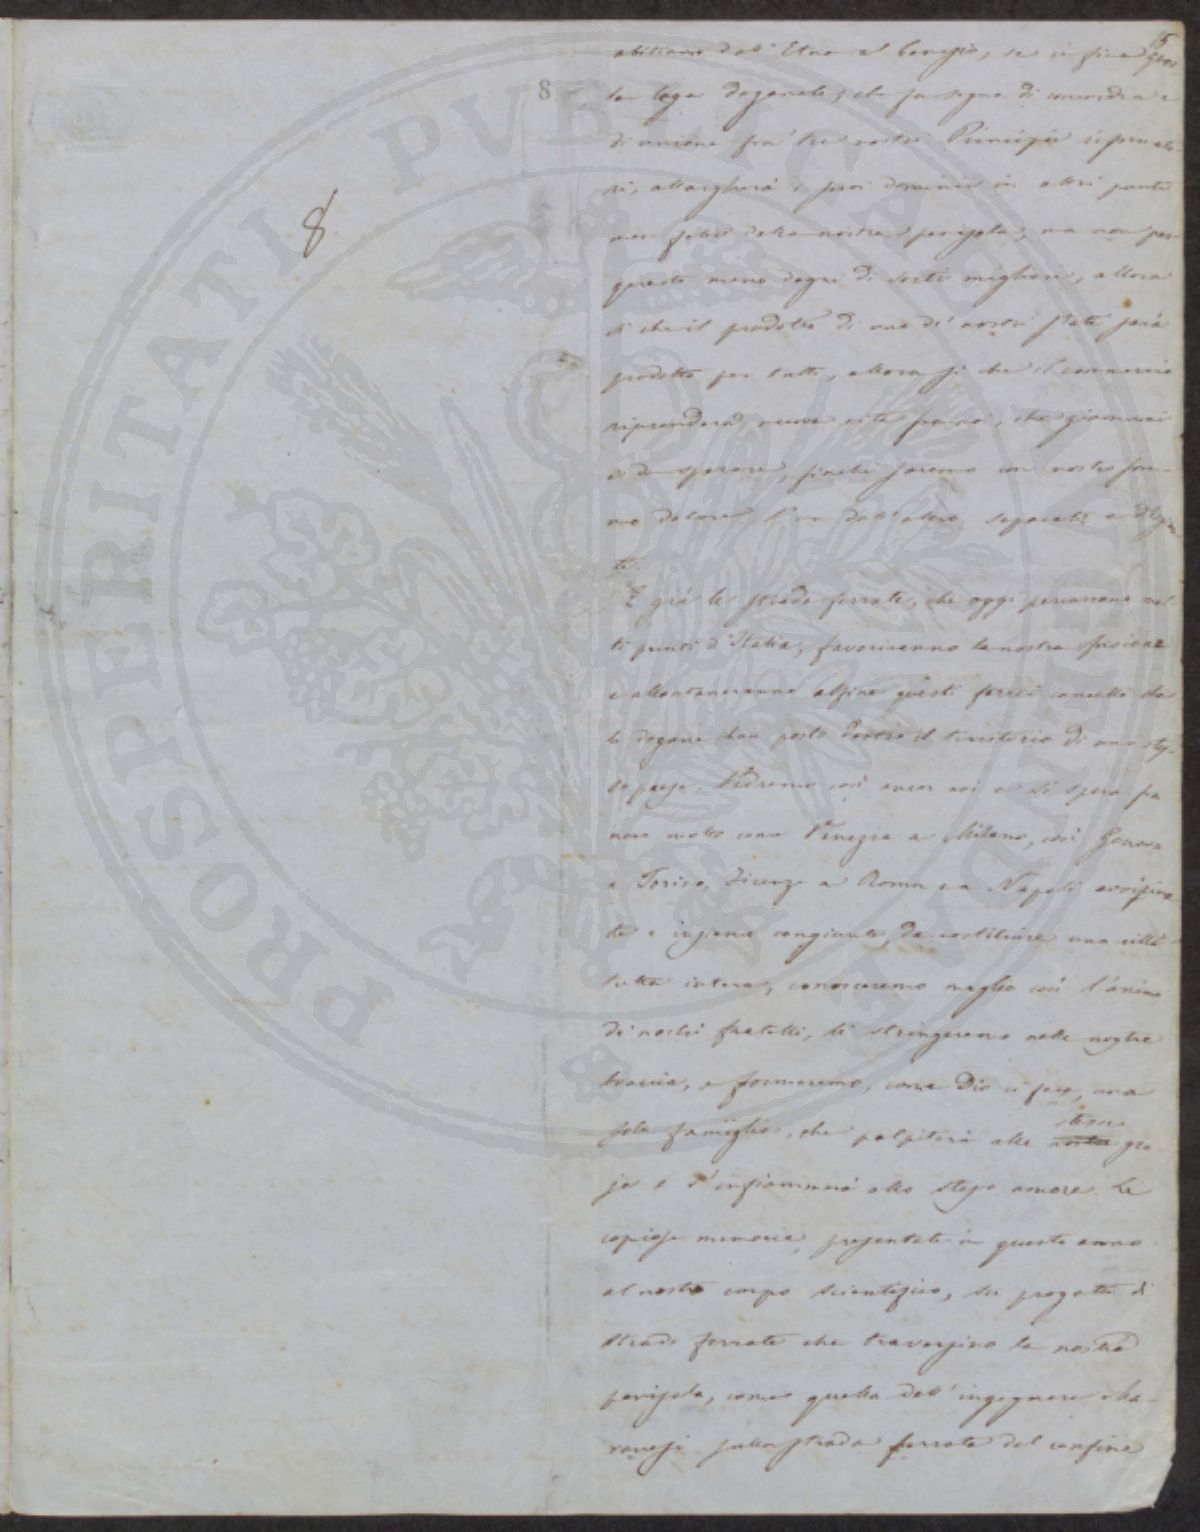 15
abitiamo dall' Etna al Cenisio, se in fine questa
8
la lega doganale, che fu segno di concordia e
di unione fra tre nostri Principi riformato-
ri, allargherà i suoi dominii in altri punti
8
men felici della nostra penisola, ma non per
questo meno degni di sorti migliori, allora
sì che il prodotto di uno de' nostri stati sarà
prodotto per tutti, allora sì che il commercio
riprenderà nuova vita fra noi, che giammai
è da sperare, finchè saremo con nostro som-
mo dolore l'un dall'altro separati e
ti.
E già le strade ferrate, che oggi percorrono mol-
ti punti d'Italia, favoriranno la nostra fusione
e allontaneranno alfine questi ferrei cancelli che
le dogane han posto dentro il territorio di uno stes-
so paese. Vedremo così ancor noi e si spera fra
non molto come Venezia a Milano, così Genova
a Torino, Firenze a Roma e a Napoli avvicina-
te e insieme congiunte, da costituire una città
tutta intera, conosceremo meglio così l'animo
de' nostri fratelli, li stringeremo nelle nostre
braccia, e formeremo, come Dio ci fece, una
sola famiglia, che palpiterà alle nostre stesse gio-
je e s'infiammerà allo stesso amore. Le
copiose memorie presentate in questo anno
al nostro corpo scientifico, su progetti di
strade ferrate che traversino la nostra
penisola, come quella dell' ingegnere
sulla strada ferrata dal confine
PROSPERITATI PVBLICAE AVGENDAE